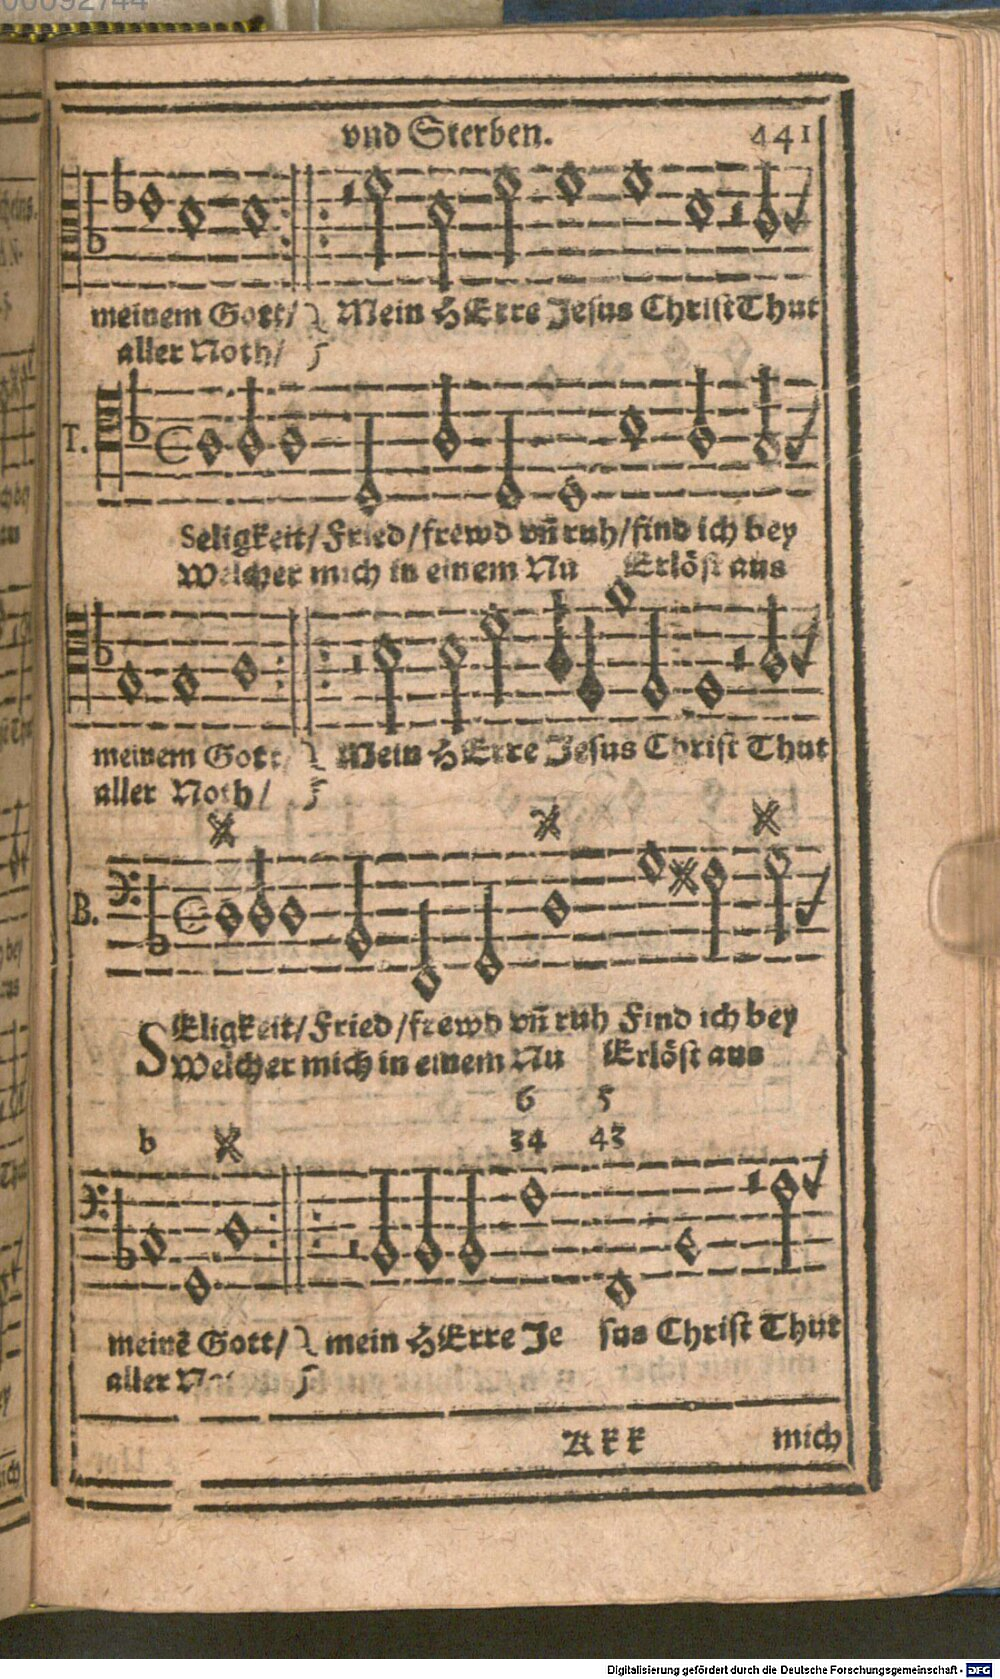 00092744
vnd Sterben. 441
meinem Gott/ Mein HErre Jesus Christ Thut
aller Noth/
T.
Seligkeit/ Fried/ frewd vñ ruh/ find ich bey
Welcher mich in einem Nu Erlöst aus
meinem Gott Mein HErre Jesus Christ Thut
aller Noth/
B.
SEligkeit/ Fried/ frewd vñ ruh Find ich bey
Welcher mich in einem Nu Erlöst aus
6 5
b 34 43
meinē Gott/ mein HErre Je sus Christ Thut
aller
Akk mich
Digitalisierung gefördert durch die Deutsche Forschungsgemeinschaft - DFG